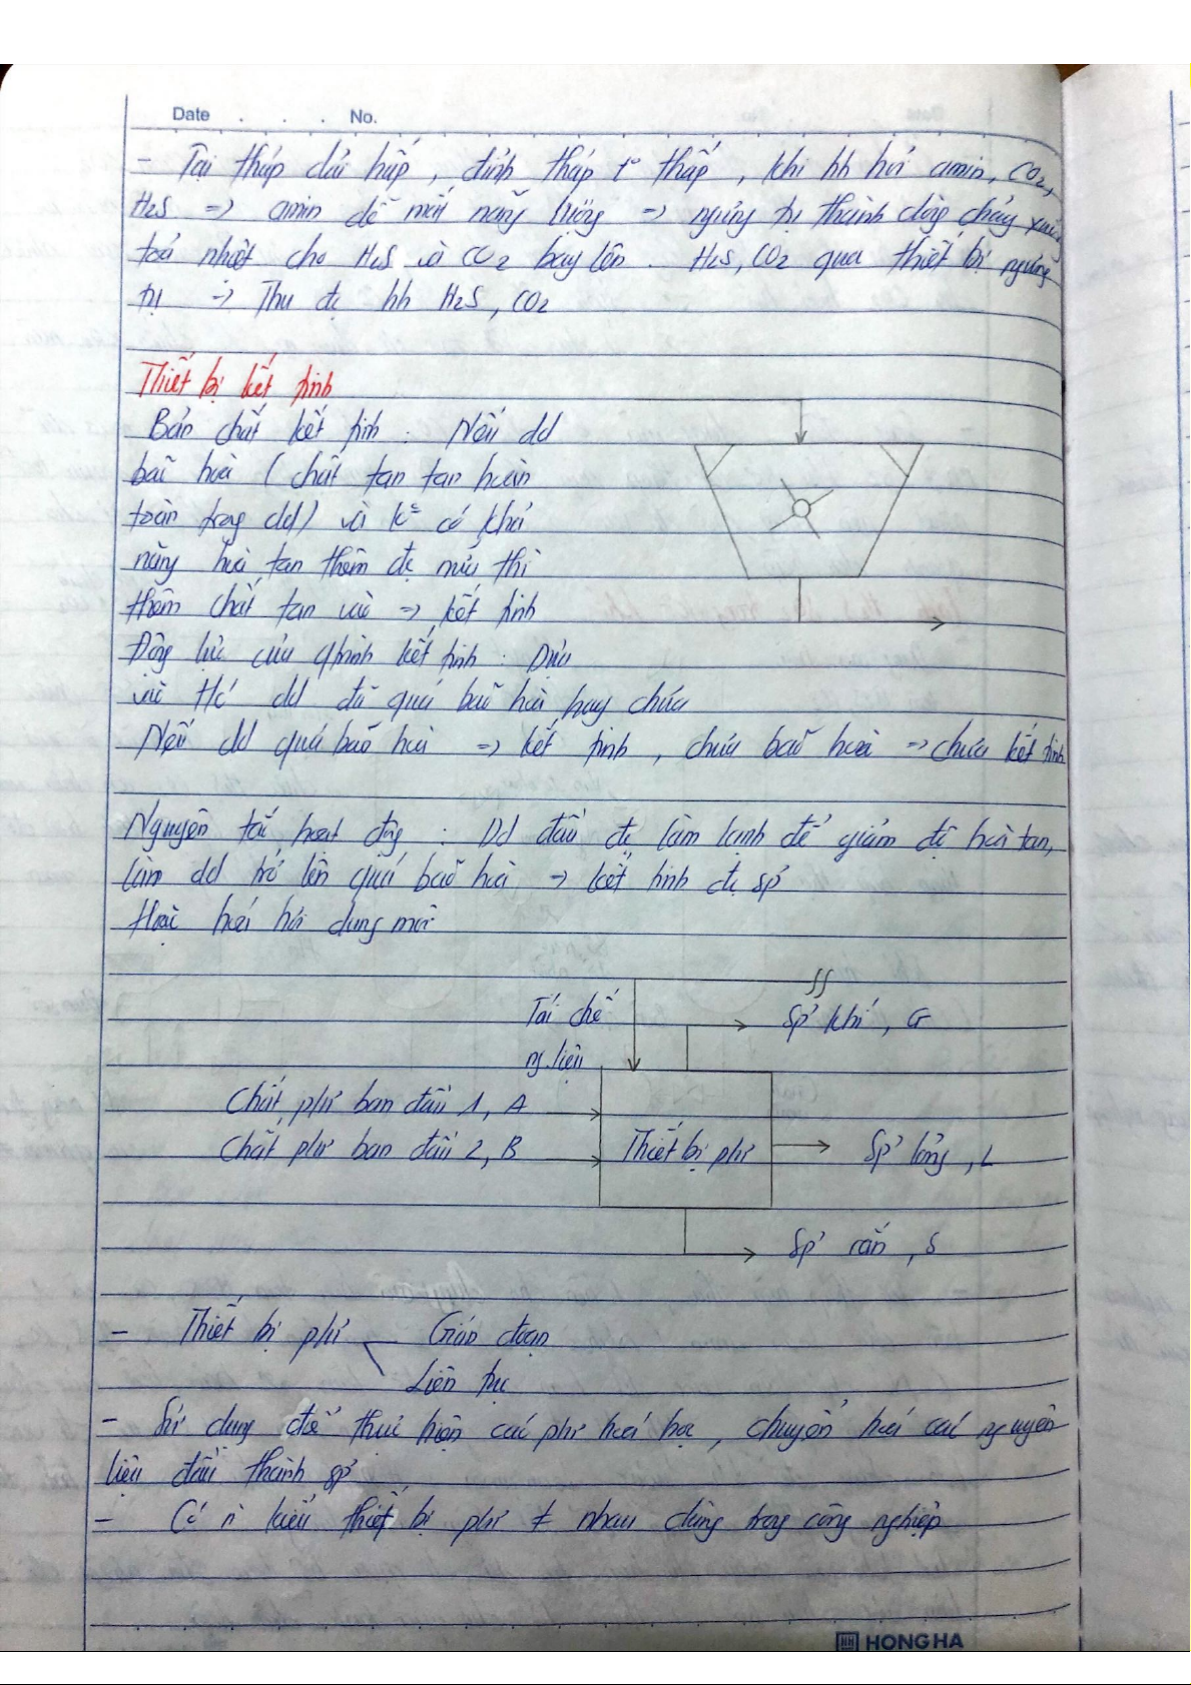 Date . . . No.
- Tại tháp dải hấp, đỉnh tháp t° thấp, khi hh hơi amin, CO2,
H2S => amin dễ mất năng lượng => ngưng tụ thành dòng chảy xuống
toả nhiệt cho H2S và CO2 bay lên. H2S, CO2 qua thiết bị ngưng
tụ -> Thu đc hh H2S, CO2
Thiết bị kết tinh
Bản chất kết tinh: Nếu dd
bão hoà (chất tan tan hoàn
toàn trog dd) và k° có khả
năng hoà tan thêm đc nữa thì
thêm chất tan vào => kết tinh
Động lực của qtrình kết tinh: Dựa
vào dd đã quá bão hoà hay chưa
Nếu dd quá bão hoà => kết tinh, chưa bão hoà => chưa kết tinh
Nguyên tắc hoạt độg: Dd đầu đc làm lạnh để giảm độ hoà tan,
làm dd trở lên quá bão hoà -> kết tinh đc sp'
Hoặc hoá hơi dung môi
Tái chế
ng.liệu
Sp' khí, G
Chất pứ ban đầu 1, A
Chất pứ ban đầu 2, B
Thiết bị pứ
Sp' lỏng, L
Sp' rắn, S
- Thiết bị pứ Gián đoạn
Liên tục
- Sử dụng để thực hiện các pứ hoá học, chuyển hoá các nguyên
liệu đầu thành sp'
- Có n` kiểu thiết bị pứ ≠ nhau dùng trog công nghiệp
HONG HA